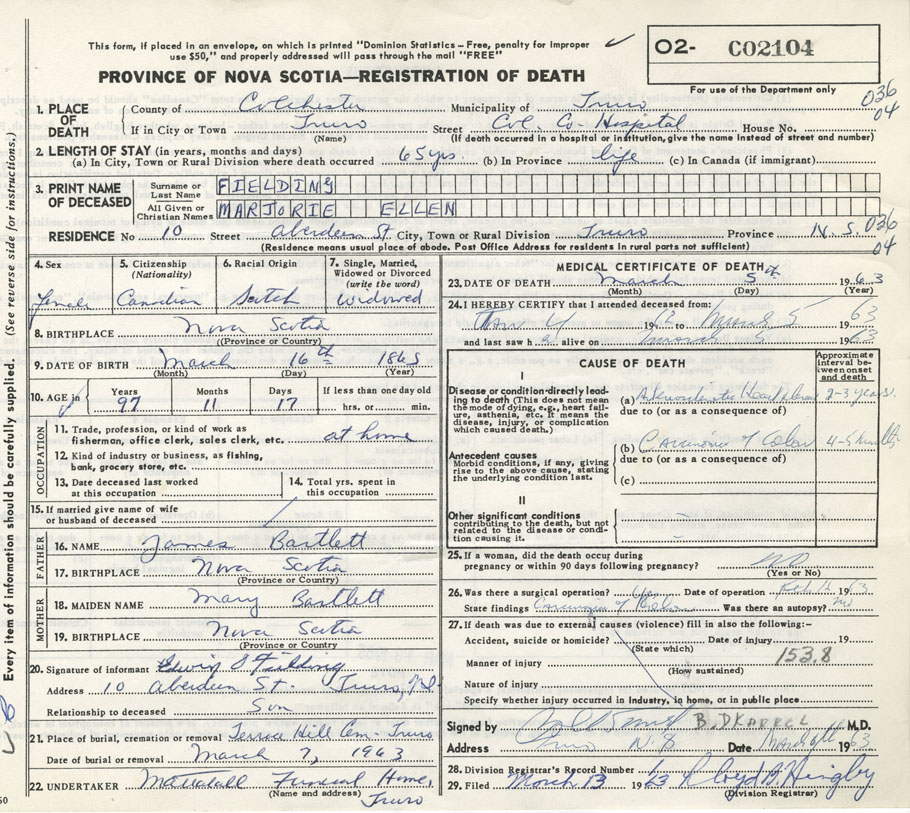 This form, if placed in an envelope, on which is printed "Dominion Statistics – Free, penalty for improper
use $50," and properly addressed will pass through the mail "FREE"
O2- C02104
PROVINCE OF NOVA SCOTIA—REGISTRATION OF DEATH
For use of the Department only
036
04
1. PLACE OF DEATH County of Colchester Municipality of Truro
If in City or Town Truro (Name) Street Col. Co- Hospital House No.
(If death occurred in hospital or institution, give the name instead of street and number)
2. LENGTH OF STAY (in years, months and days)
(a) In City, Town or Rural Division where death occurred 65 yrs. (b) In Province life (c) In Canada (if immigrant)
3. PRINT NAME OF DECEASED Surname or Last Name FIELDING
All Given or Christian Names MARJORIE ELLEN
RESIDENCE No 10 Street Aberdeen St. City, Town or Rural Division Truro Province N. S. 036
04
(Residence means usual place of abode. Post Office Address for residents in rural parts not sufficient)
4. Sex Female
5. Citizenship (Nationality) Canadian
6. Racial Origin Scotch
7. Single, Married, Widowed or Divorced (write the word) Widowed
8. BIRTHPLACE Nova Scotia
(Province or Country)
9. DATE OF BIRTH March 16th 1865
(Month) (Day) (Year)
10. AGE in Years 97 Months 11 Days 17 If less than one day old hrs. or min.
OCCUPATION
11. Trade, profession, or kind of work as
fisherman, office clerk, sales clerk, etc. at home
12. Kind of industry or business, as fishing,
bank, grocery store, etc.
13. Date deceased last worked
at this occupation
14. Total yrs. spent in
this occupation
15. If married give name of wife
or husband of deceased
FATHER
16. NAME James Bartlett
17. BIRTHPLACE Nova Scotia
(Province or Country)
MOTHER
18. MAIDEN NAME Mary Bartlett
19. BIRTHPLACE Nova Scotia
(Province or Country)
20. Signature of informant Fielding
Address 10 Aberdeen St- Truro, N.S.
Relationship to deceased Son
21. Place of burial, cremation or removal Terrace Hill Cem- Truro
Date of burial or removal March 7, 1963
22. UNDERTAKER Mattatall Funeral Home,
(Name and address) Truro
MEDICAL CERTIFICATE OF DEATH
23. DATE OF DEATH March 5th 1963
(Month) (Day) (Year)
24. I HEREBY CERTIFY that I attended deceased from:
1962 to March 5 1963
and last saw h alive on March 5 1963
CAUSE OF DEATH
Approximate interval between onset and death
I
Disease or condition directly leading to death (This does not mean
the mode of dying, e.g., heart failure, asthenia, etc. It means the
disease, injury, or complication
which caused death.)
(a) Heart disease 2-3 years.
due to (or as a consequence of)
Antecedent causes
Morbid conditions, if any, giving
rise to the above cause, stating
the underlying condition last.
(b) Carcinoma of Colon 4-5 months
due to (or as a consequence of)
(c)
II
Other significant conditions
contributing to the death, but not
related to the disease or condition causing it.
25. If a woman, did the death occur during
pregnancy or within 90 days following pregnancy? no
(Yes or No)
26. Was there a surgical operation? Yes Date of operation 1963
State findings Carcinoma of Colon Was there an autopsy? no
27. If death was due to external causes (violence) fill in also the following:-
Accident, suicide or homicide? Date of injury 19
(State which)
Manner of injury 153.8
(How sustained)
Nature of injury
Specify whether injury occurred in industry, in home, or in public place
Signed by B. D KARREL M.D.
Address Truro N S Date 1963
28. Division Registrar's Record Number
29. Filed March 13 1963 Lloyd B. Hingley
(Division Registrar)
Every item of information should be carefully supplied. (See reverse side for instructions.)